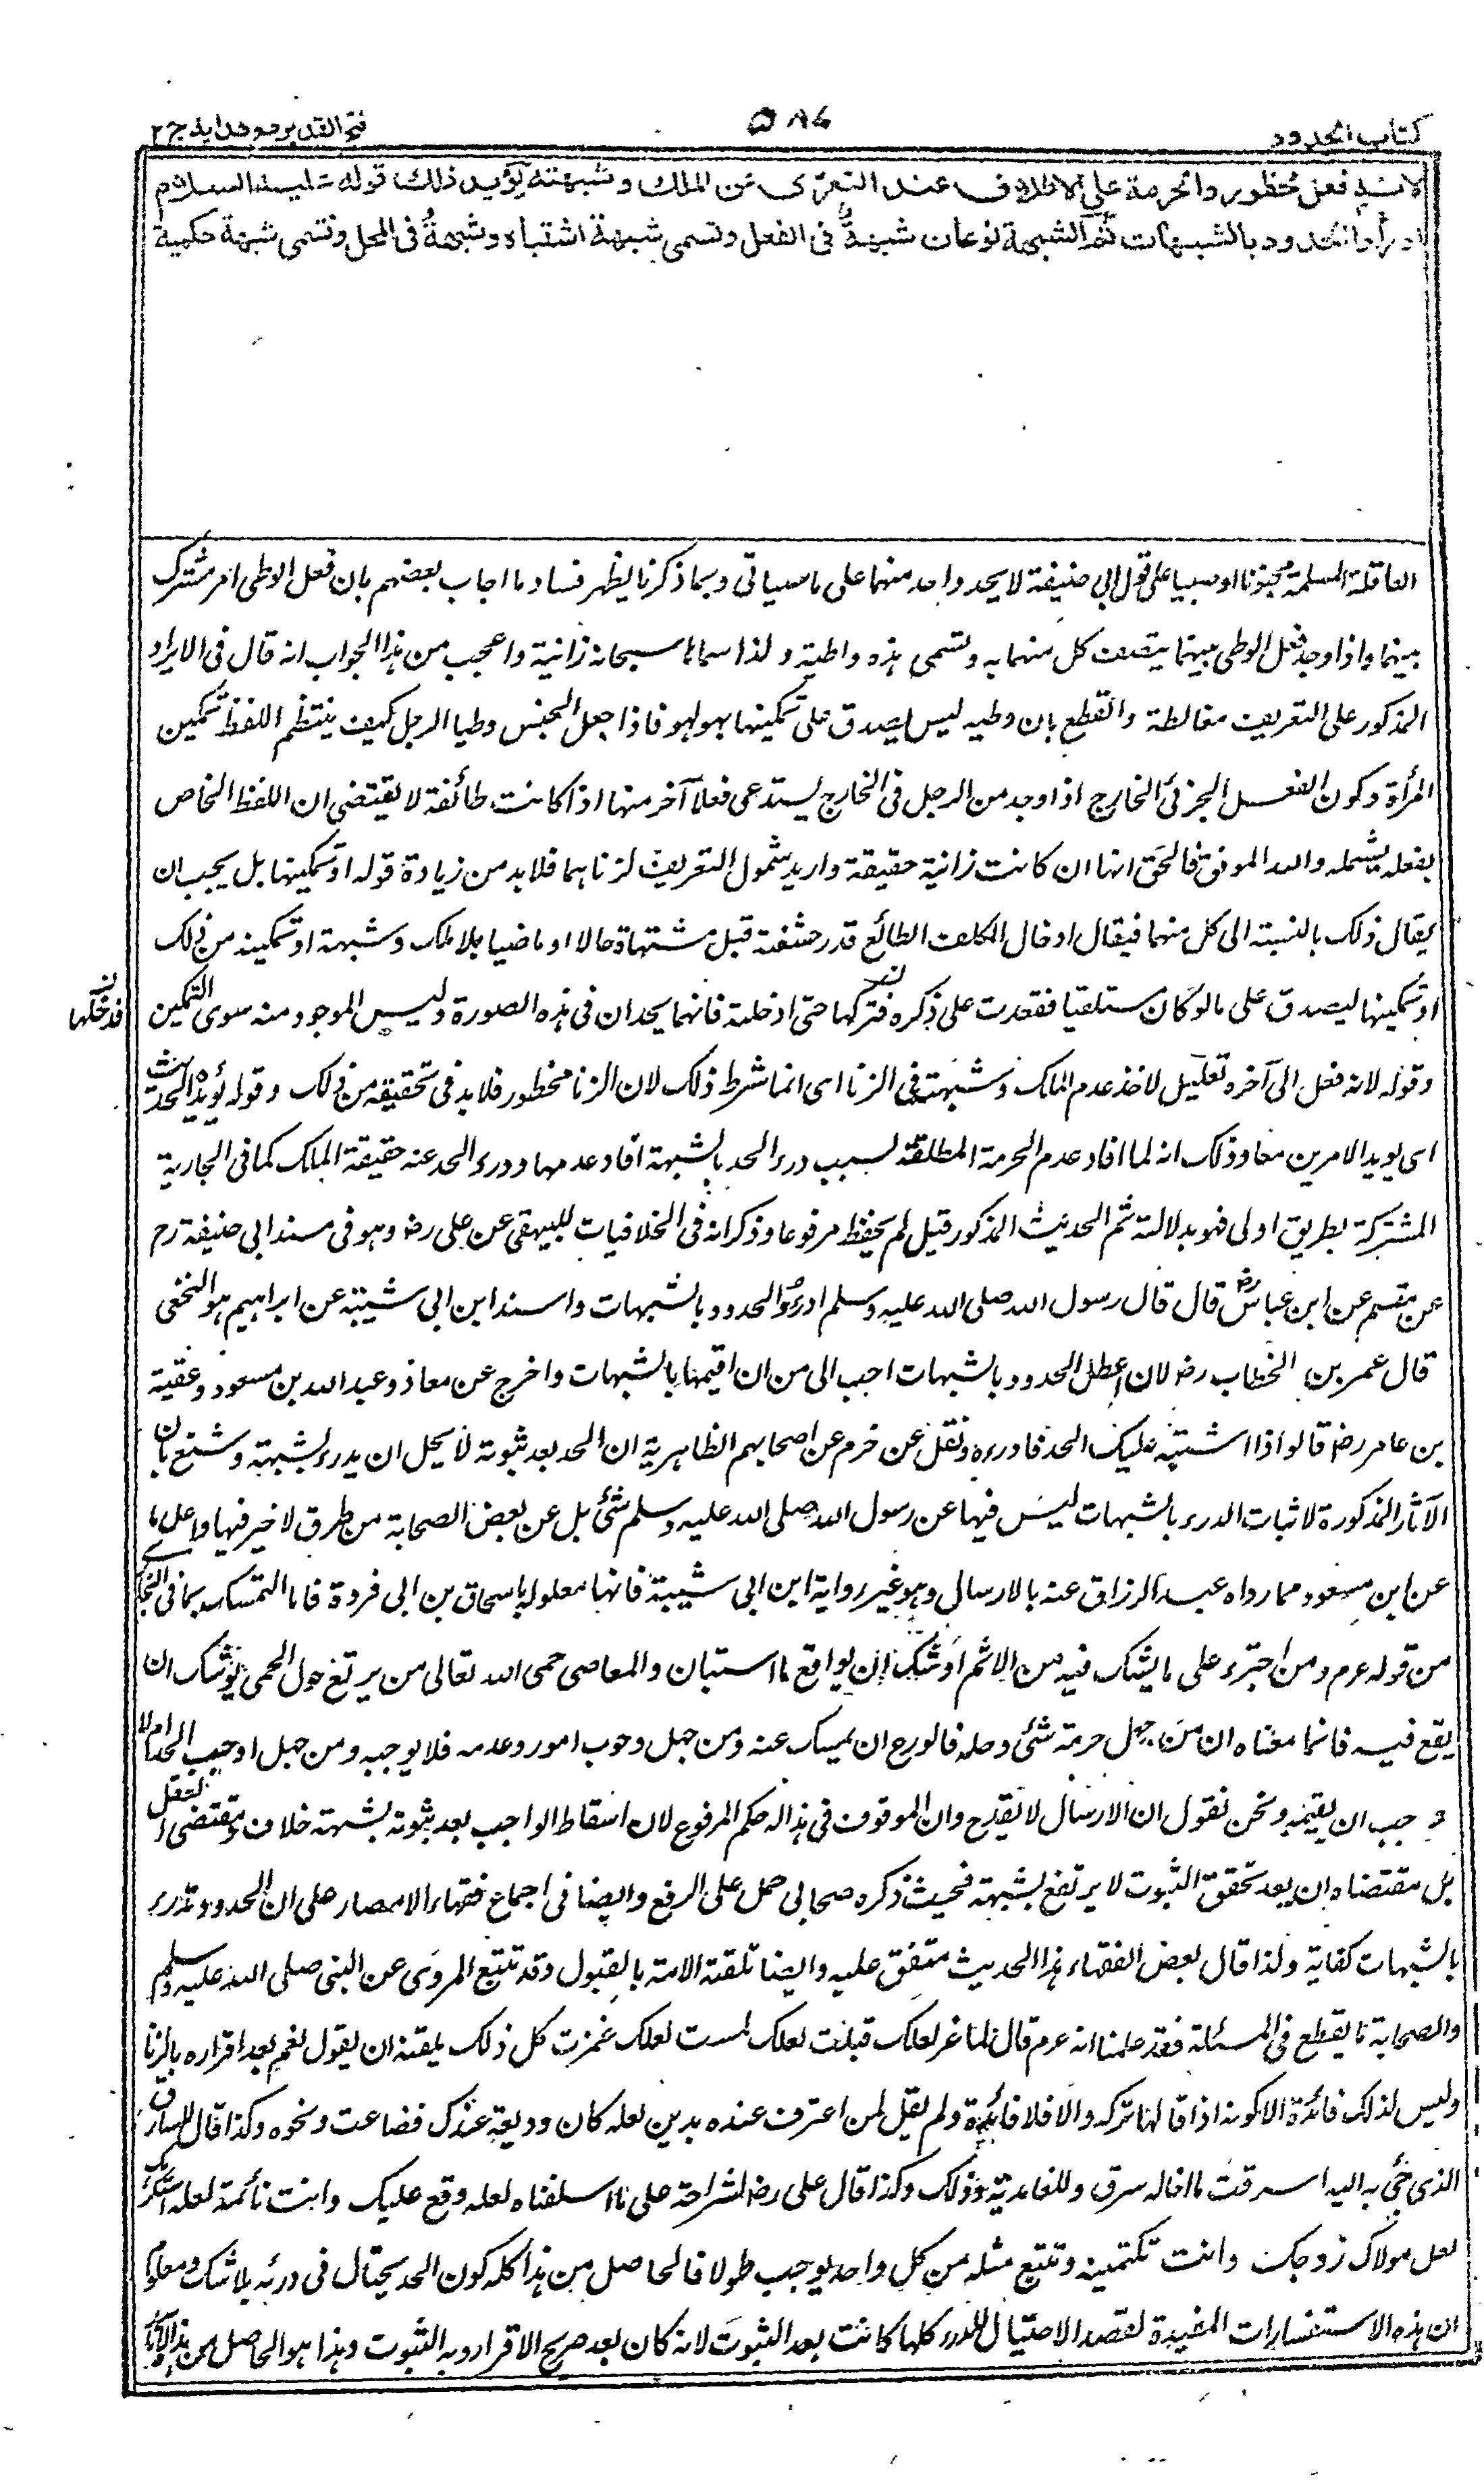 كتاب الحدود
فتح القدير مع هداية ج ٢
لانه فعل محظور والحرمة على الاطلاق عند التعرى عن الملك وشبهته يؤيد ذلك قوله عليه السلام
ادرأوا الحدود بالشبهات ثم الشبهة نوعان شبهة فى الفعل وتسمى شبهة اشتباه وشبهة فى المحل وتسمى شبهة حكمية
العاقلة المسلمة مجنونا او صبيا على قول ابى حنيفة لا يحد واحد منهما على ما سياتى وبما ذكرنا يظهر فساد ما اجاب بعضهم بان فعل الوطى امر مشترك
بينهما واذا وجد فعل الوطى بينهما يتصف كل منهما به وتسمى هذه واطية ولذا سماها سبحانه زانية واعجب من هذا الجواب انه قال فى الايراد
المذكور على التعريف مغالطة والقطع بان وطيه ليس يصدق على تمكينها بهو لهو فاذا جعل الجنس وطيا الرجل كيف ينتظم اللفظ تمكين
المرأة وكون الفعل الجزئى الخارج اذا وجد من الرجل فى الخارج يستدعى فعلا آخر منها اذا كانت طائفة لا يقتضى ان اللفظ الخاص
بفعله يشمله والله الموفق فالحق انها ان كانت زانية حقيقة واريد شمول التعريف لزناهما فلا بد من زيادة قوله او تمكينها بل يجب ان
يقال ذلك بالنسبة الى كل منهما فيقال ادخال المكلف الطائع قدر حشفة قبل مشتهاة حالا او ماضيا بلا ملك وشبهة او تمكينه من ذلك
او تمكينها ليصدق على ما لو كان مستلقيا فقعدت على ذكره فتركها حتى ادخلته فانهما يحدان فى هذه الصورة وليس الموجود منه سوى التمكين
وقوله لانه فعل الى آخره تعليل لاخذ عدم الملك وشبهته فى الزنا اى انما شرط ذلك لان الزنا محظور فلا بد فى تحقيقه من ذلك وقوله يؤيده الحديث
اى يويد الامرين معا وذلك انه لما افاد عدم الحرمة المطلقة لسبب درء الحد بالشبهة افاد عدمها ودرء الحد عنه حقيقة الملك كما فى الجارية
المشتركة بطريق اولى فهو بدلالته ثم الحديث المذكور قيل لم يحفظ مرفوعا وذكر انه فى الخلافيات للبيهقى عن على رض وهو فى مسند ابى حنيفة رح
عن مقسم عن ابن عباس رض قال قال رسول الله صلى الله عليه وسلم ادرؤا الحدود بالشبهات واسند ابن ابى شيبة عن ابراهيم هو النخعى
قال عمر بن الخطاب رض لان اعطل الحدود بالشبهات احب الى من ان اقيمها بالشبهات واخرج عن معاذ وعبد الله بن مسعود وعقبة
بن عامر رض قالوا اذا اشتبه عليك الحد فادرءه ونقل عن حزم عن اصحابهم الظاهرية ان الحد بعد ثبوته لا يحل ان يدرء بشبهة وشنع بان
الآثار المذكورة لاثبات الدرء بالشبهات ليس فيها عن رسول الله صلى الله عليه وسلم شئ بل عن بعض الصحابة من طرق لا خير فيها واعل ما
عن ابن مسعود مما رواه عبد الرزاق عنه بالارسال وهو غير رواية ابن ابى شيبة فانها معلولة باسحاق بن ابى فروة فاما التمسك بما فى البخارى
من قوله عرم ومن اجترء على ما يشك فيه من الاثم اوشك ان يواقع ما استبان والمعاصى حمى الله تعالى من يرتع حول الحمى يوشك ان
يقع فيه فانما معناه ان من جهل حرمة شئ وحله فالورع ان يمسك عنه ومن جهل وجوب امر وعدمه فلا يوجبه ومن جهل اوجب الحد ام لا
وجب ان يقيمه ونحن نقول ان الارسال لا يقدح وان الموقوف فى هذا له حكم المرفوع لان اسقاط الواجب بعد ثبوته بشبهة خلاف مقتضى العقل
بل مقتضاه ان بعد تحقق الثبوت لا يرتفع بشبهة فحيث ذكره صحابى حمل على الرفع وايضا فى اجماع فقهاء الامصار على ان الحدود تدرء
بالشبهات كفاية ولذا قال بعض الفقهاء هذا الحديث متفق عليه وايضا تلقته الامة بالقبول وقد تتبع المروى عن النبى صلى الله عليه وسلم
والصحابة ما يقطع فى المسئلة فقد علمنا انه عرم قال لماعز لعلك قبلت لعلك لمست لعلك غمزت كل ذلك يلقنه ان يقول نعم بعد اقراره بالزنا
وليس لذلك فائدة الا كونه اذا قالها تركه والا فلا فائدة ولم يقل لمن اعترف عنده بدين لعله كان وديعة عندك فضاعت ونحوه وكذا قال للسارق
الذى جئ به اليه اسرقت ما اخاله سرق وللغامدية نحو ذلك وكذا قال على رض لشراحة على ما اسلفناه لعله وقع عليك وانت نائمة لعله استكرهك
لعل مولاك زوجك وانت تكتمينه وتتبع مثله من كل واحد يوجب طولا فالحاصل من هذا كله كون الحد يحتال فى درئه بلا شك ومعلوم
ان هذه الاستفسارات المفيدة لقصد الاحتيال للدرء كلها كانت بعد الثبوت لانه كان بعد صريح الاقرار وبه الثبوت وهذا هو الحاصل من هذه الآثار